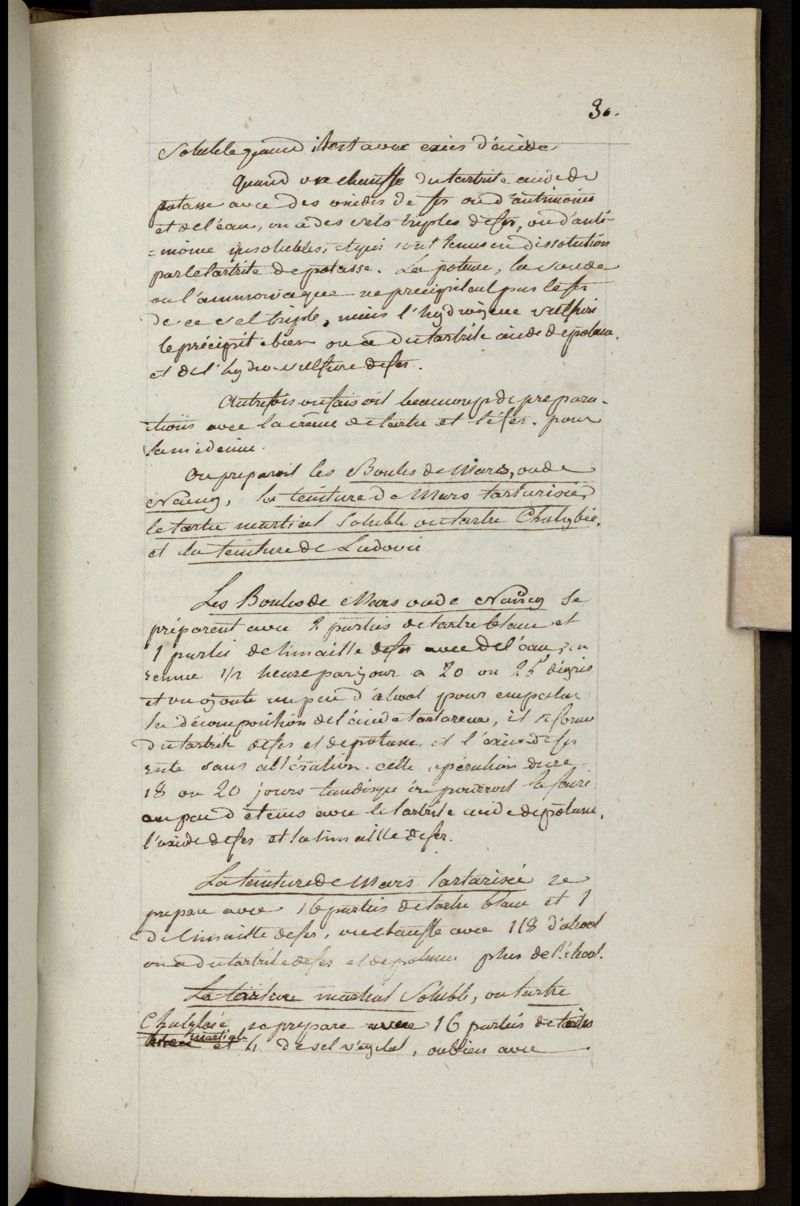 30.
Soluble quand il est avec exces d'acide
Quand on chauffe du tartrite acide de
potasse avec des oxides de fer ou d'antimoine
et de l'eau, on a des sels triples de fer, ou d'anti-
=moine insolubles, et qui sont tenus en dissolution
par le tartrite de potasse. La potasse, la soude
ou l'ammoniaque ne precipitent pas le fer
de ce sel triple, mais l'hydrogene sulfuré
le précipite bien on a du tartrite acide de potasse.
et de l'hydro-sulfure de fer.
Autrefois on faisoit beaucoup de prepara-
tions avec la crême de tartre et le fer. pour
la médecine.
On preparoit les Boules de Mars, ou de
Nancy, la teinture de Mars tartarisée,
le tartre martial Soluble ou tartre Chalybée,
et la teinture de Ludovic
Les Boules de Mars ou de Nancy se
préparent avec 2 parties de tartre blanc et
1 partie de limaille de fer avec de l'eau, on
remue 1/2 heure par jour a 20 ou 25 dégrés
et on ajoute un peu d'alcool pour empecher
la décomposition de l'acide tartareux, il se forme
du tartrite de fer et de potasse et l'oxide de fer
reste sans altération. cette opération dure
18 ou 20 jours tandisque on pourroit le faire
en peu de tems avec le tartrite acide de potasse,
l'oxide de fer et la limaille de fer.
La teinture de Mars tartarisée se
prepare avec 16 parties de tartre blanc et 1
de limaille de fer, on chauffe avec 118 d'alcool
on a du tartrite de fer et de potasse plus de l'alcool.
La tartre martial Soluble, ou tartre
Chalybée, se prepare avec 16 parties de tartre
martial et 4 de sel végétal, ou bien avec